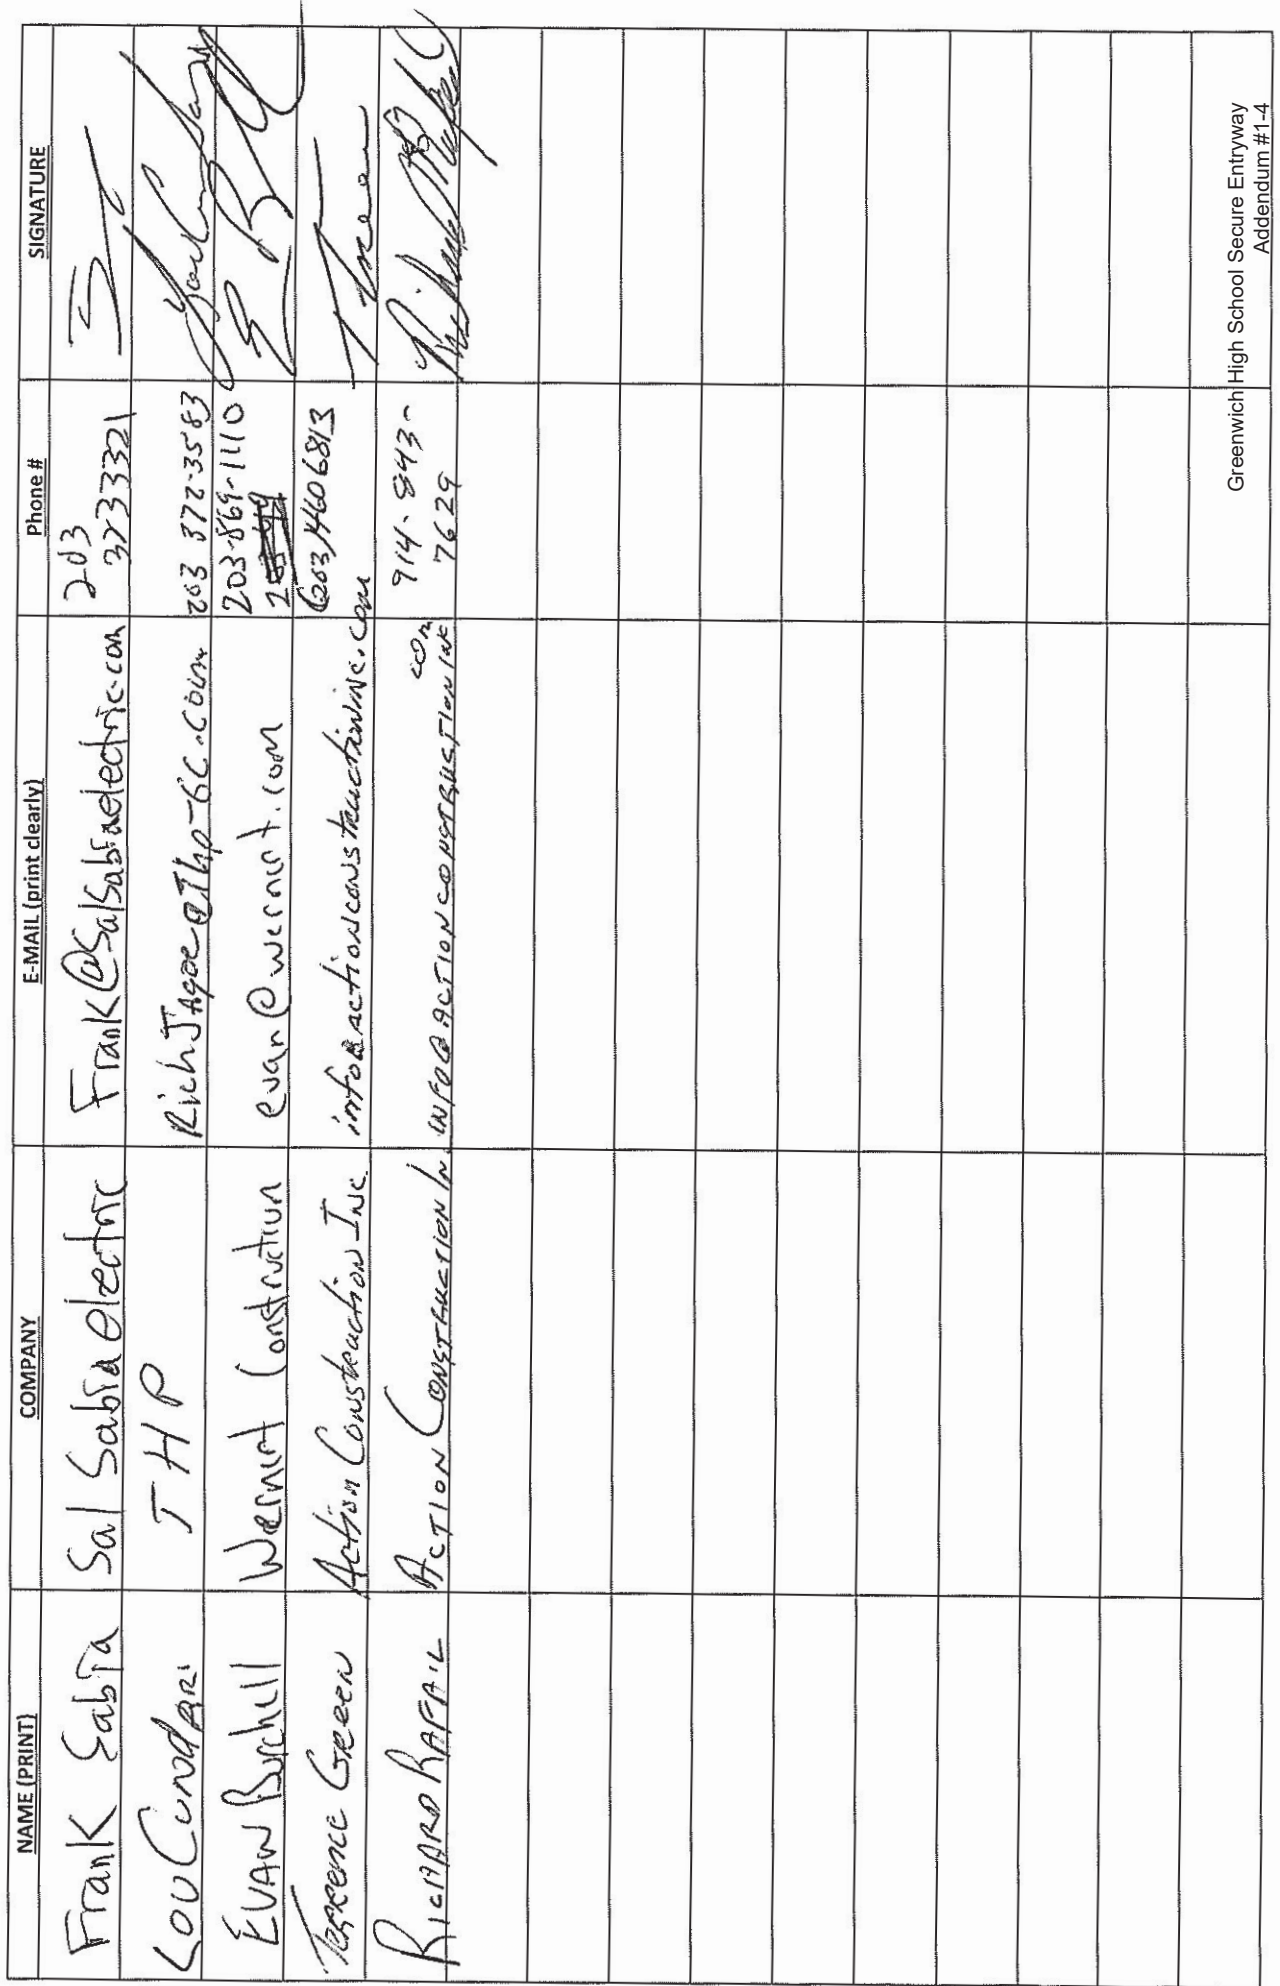 NAME (PRINT) COMPANY E-MAIL (print clearly) Phone # SIGNATURE
Frank Sabia Sal Sabia electric Frank@Salsabiaelectric.com 203
3733321
Lou Cundari THP RichJAgoe@Thp-GC.com 203 372-3583
EVAN Burchell Wernert Construction evan@wernert.com 203-869-1110
Terrence Green Action Construction Inc. info@actionconstructioninc.com (203)4606813
RICHARD RAFAIL ACTION CONSTRUCTION IN. INFO@ACTIONCONSTRUCTIONINC com 914-843-
7629
Greenwich High School Secure Entryway
Addendum #1-4